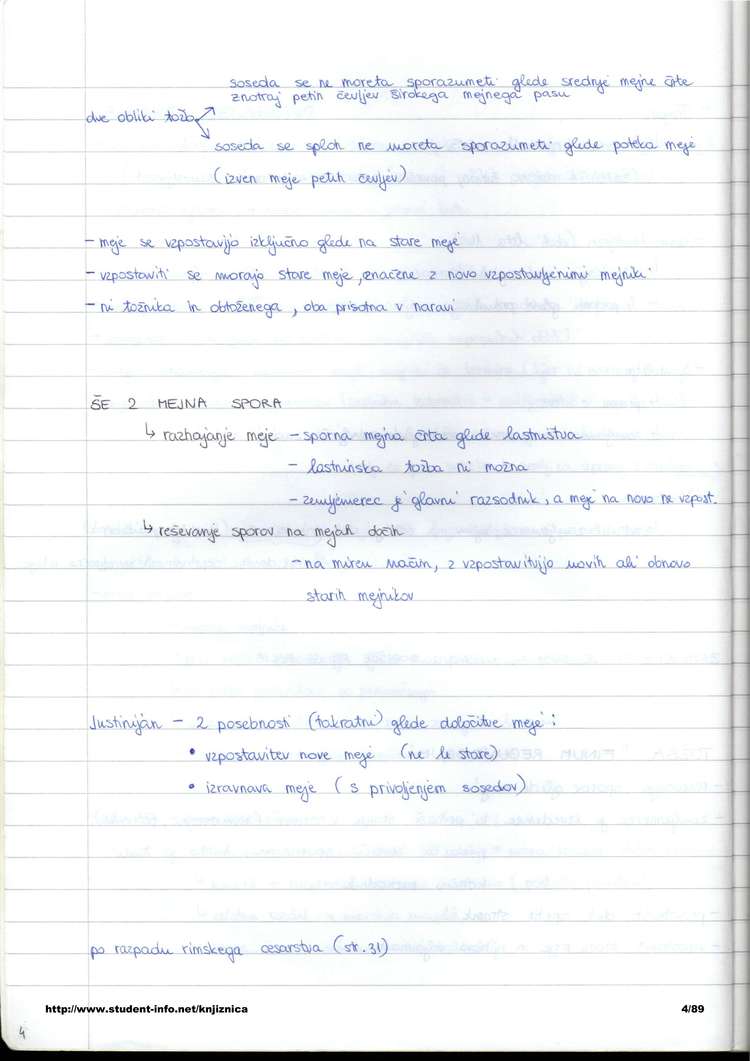 soseda se ne moreta sporazumeti glede srednje mejne črte
znotraj petih čevljev širokega mejnega pasu
dve obliki tožb
soseda se sploh ne moreta sporazumeti glede poteka meje
(izven meje petih čevljev)
- meje se vzpostavijo izključno glede na stare meje
- vzpostaviti se morajo stare meje, značene z novo vzpostavljenimi mejniki
- ni tožnika in obtoženega, oba prisotna v naravi
ŠE 2 MEJNA SPORA
↳ razhajanje meje - sporna mejna črta glede lastništva
- lastninska tožba ni možna
- zemljemerec je glavni razsodnik, a meje na novo ne vzpost.
↳ reševanje sporov na mejah
- na miren način, z vzpostavitvijo novih ali obnovo
starih mejnikov
Justinijan - 2 posebnosti (takratni) glede določitve meje:
• vzpostavitev nove meje (ne le stare)
• izravnava meje (s privoljenjem sosedov)
po razpadu rimskega cesarstva (str. 31)
http://www.student-info.net/knjiznica 4/89
4